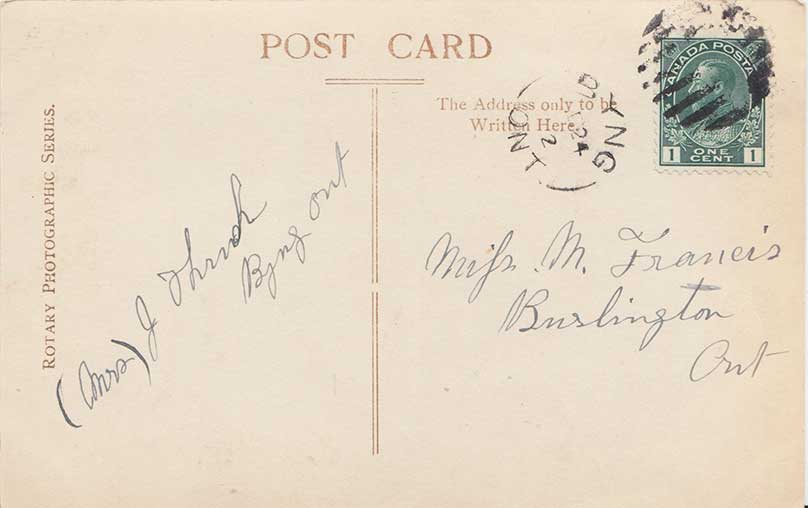 POST CARD
The Address only to be
Written Here.
ROTARY PHOTOGRAPHIC SERIES.
(Mrs) J
Byng Ont
Miss. M. Francis
Burlington
Ont
CANADA POSTAGE
1 ONE CENT 1
YNG
ONT